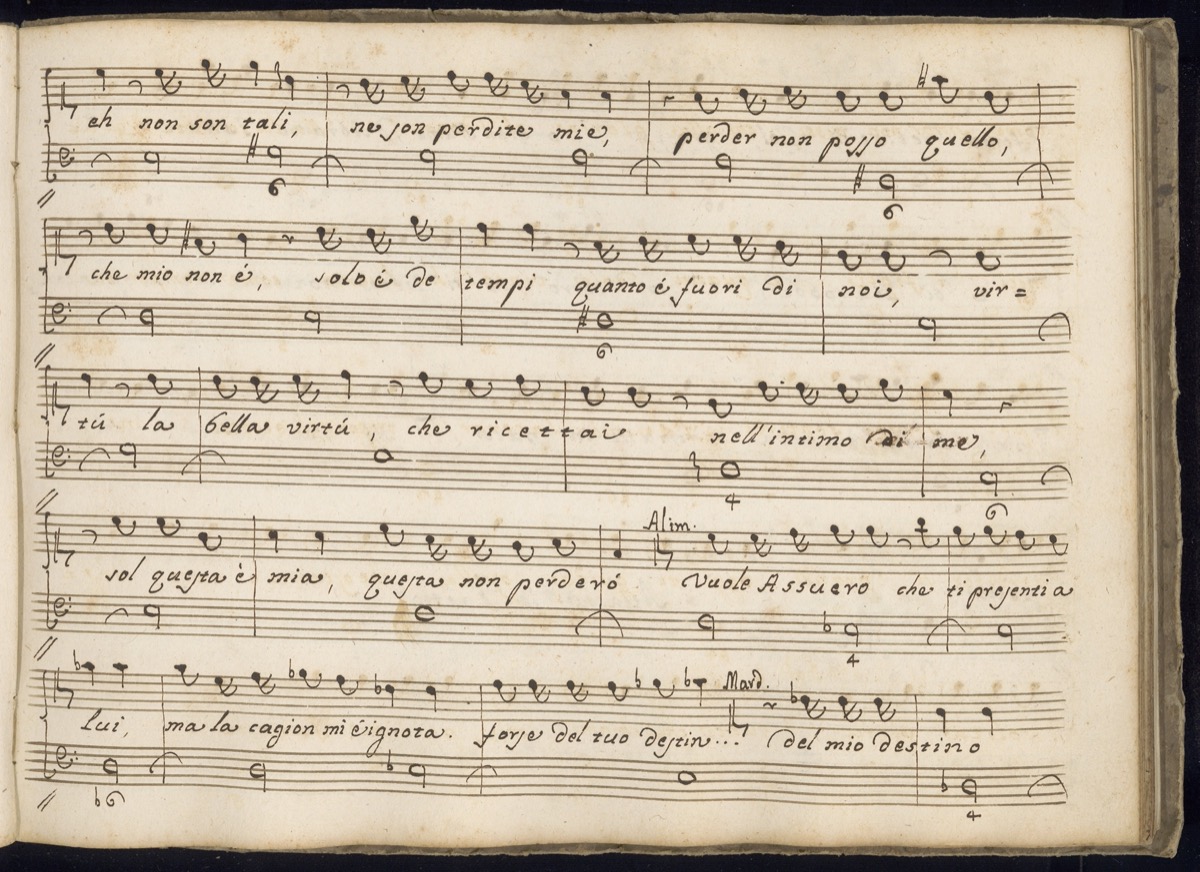 eh non son tali, ne son perdite mie, perder non posso quello,
6 6
che mio non é, solo é de tempi quanto é fuori di noi, vir=
6
tú la bella virtú, che ricettai nell'intimo di me,
4 6
Alim.
sol questa è mia, questa non perderó Vuole Assuero che ti presenti a
4
Mard.
lui, ma la cagion mi é ignota. forse del tuo destin... del mio destino
♭6 4